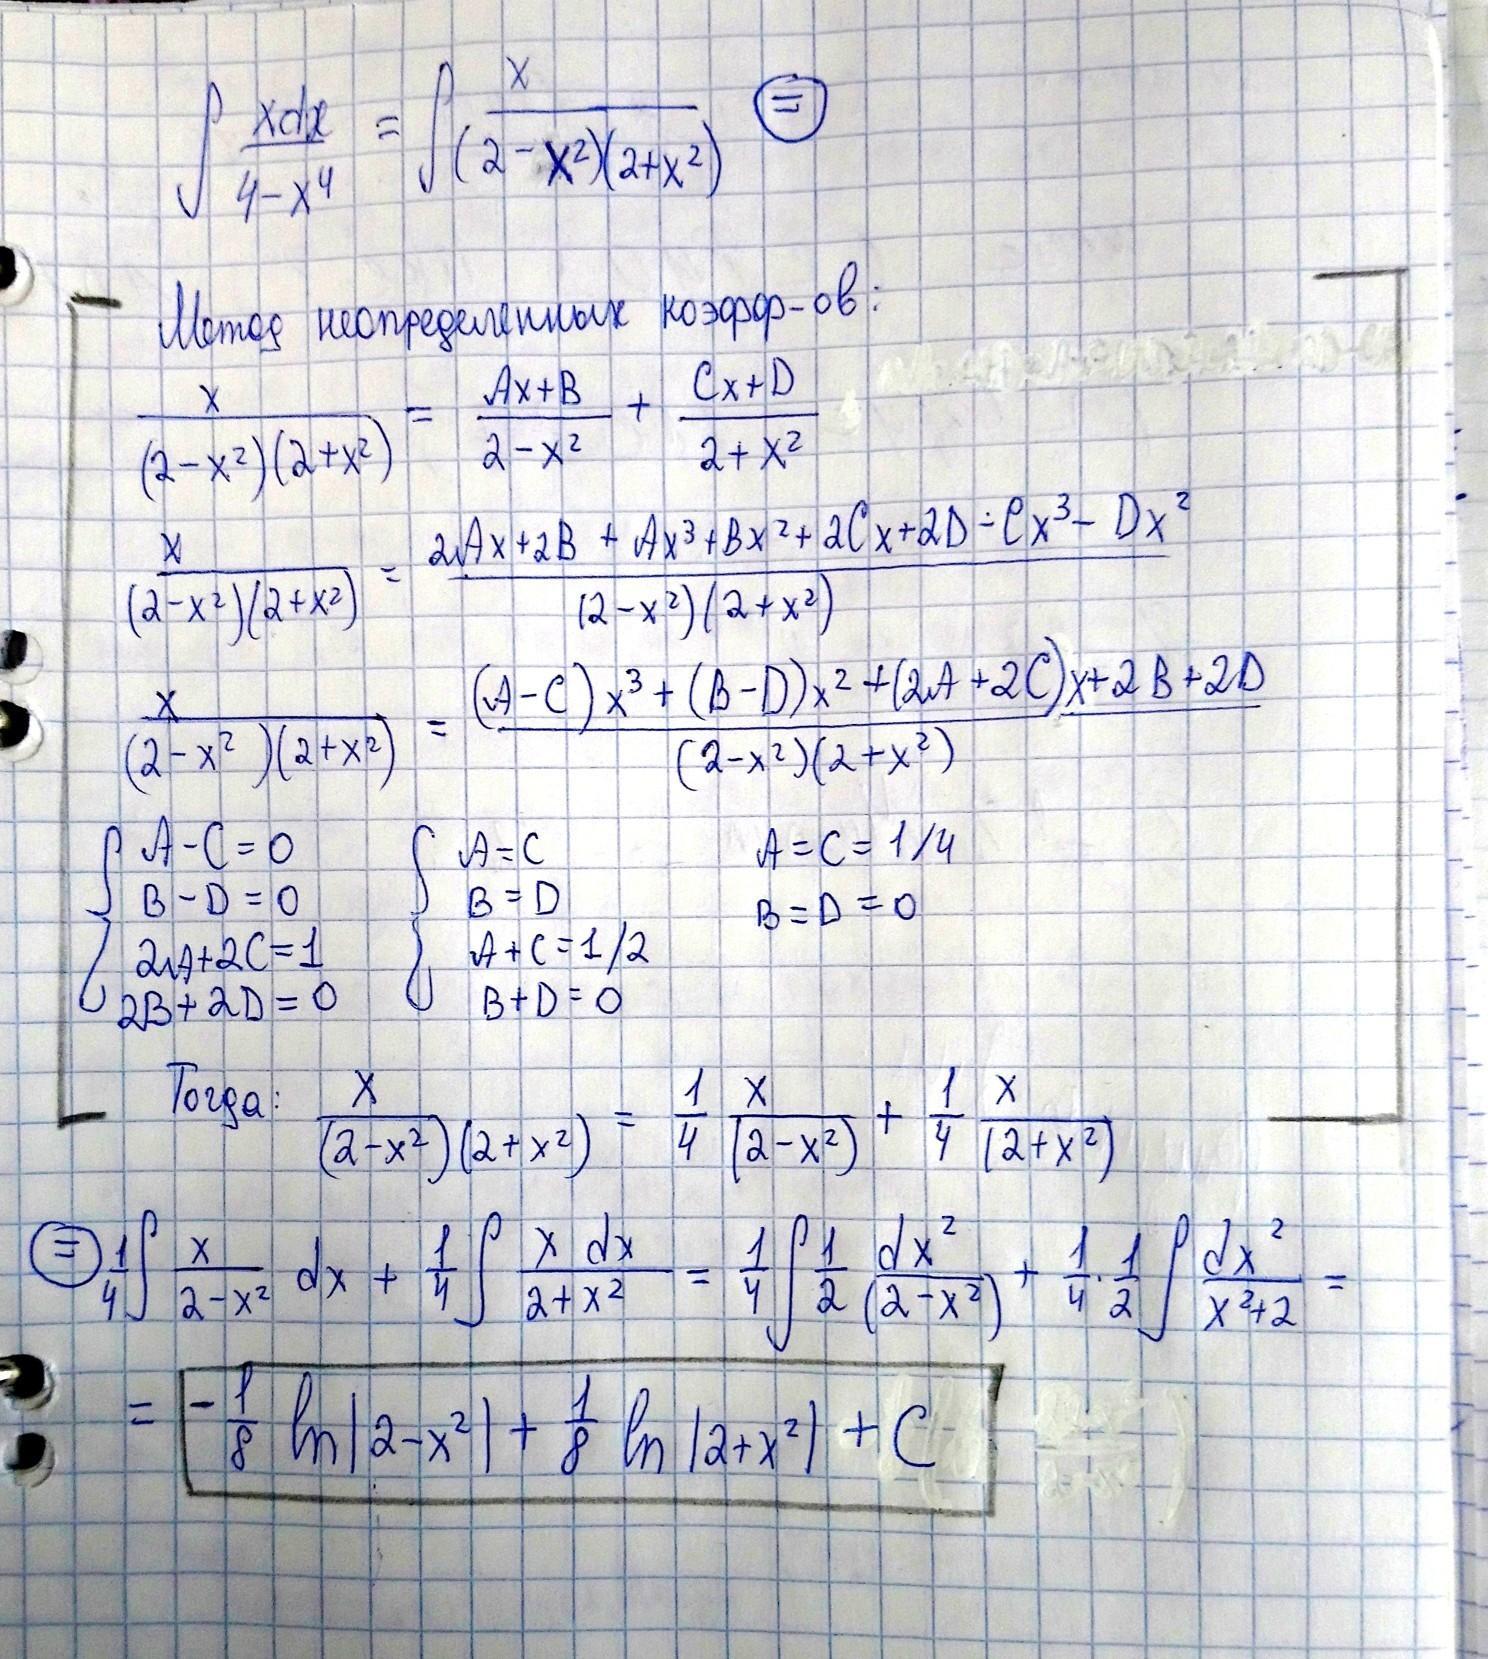 ∫ xdx/(4-x⁴) = ∫ x/((2-x²)(2+x²)) ⊜
Метод неопределенных коэфф-ов:
x/((2-x²)(2+x²)) = (Ax+B)/(2-x²) + (Cx+D)/(2+x²)
x/((2-x²)(2+x²)) = (2Ax+2B+Ax³+Bx²+2Cx+2D-Cx³-Dx²)/((2-x²)(2+x²))
x/((2-x²)(2+x²)) = ((A-C)x³+(B-D)x²+(2A+2C)x+2B+2D)/((2-x²)(2+x²))
{ A-C=0 { A=C A=C=1/4
B-D=0 B=D B=D=0
2A+2C=1 A+C=1/2
2B+2D=0 B+D=0
Тогда: x/((2-x²)(2+x²)) = 1/4 x/(2-x²) + 1/4 x/(2+x²)
⊜ 1/4 ∫ x/(2-x²) dx + 1/4 ∫ x dx/(2+x²) = 1/4 ∫ 1/2 dx²/(2-x²) + 1/4 · 1/2 ∫ dx²/(x²+2) =
= -1/8 ln|2-x²| + 1/8 ln|2+x²| + C